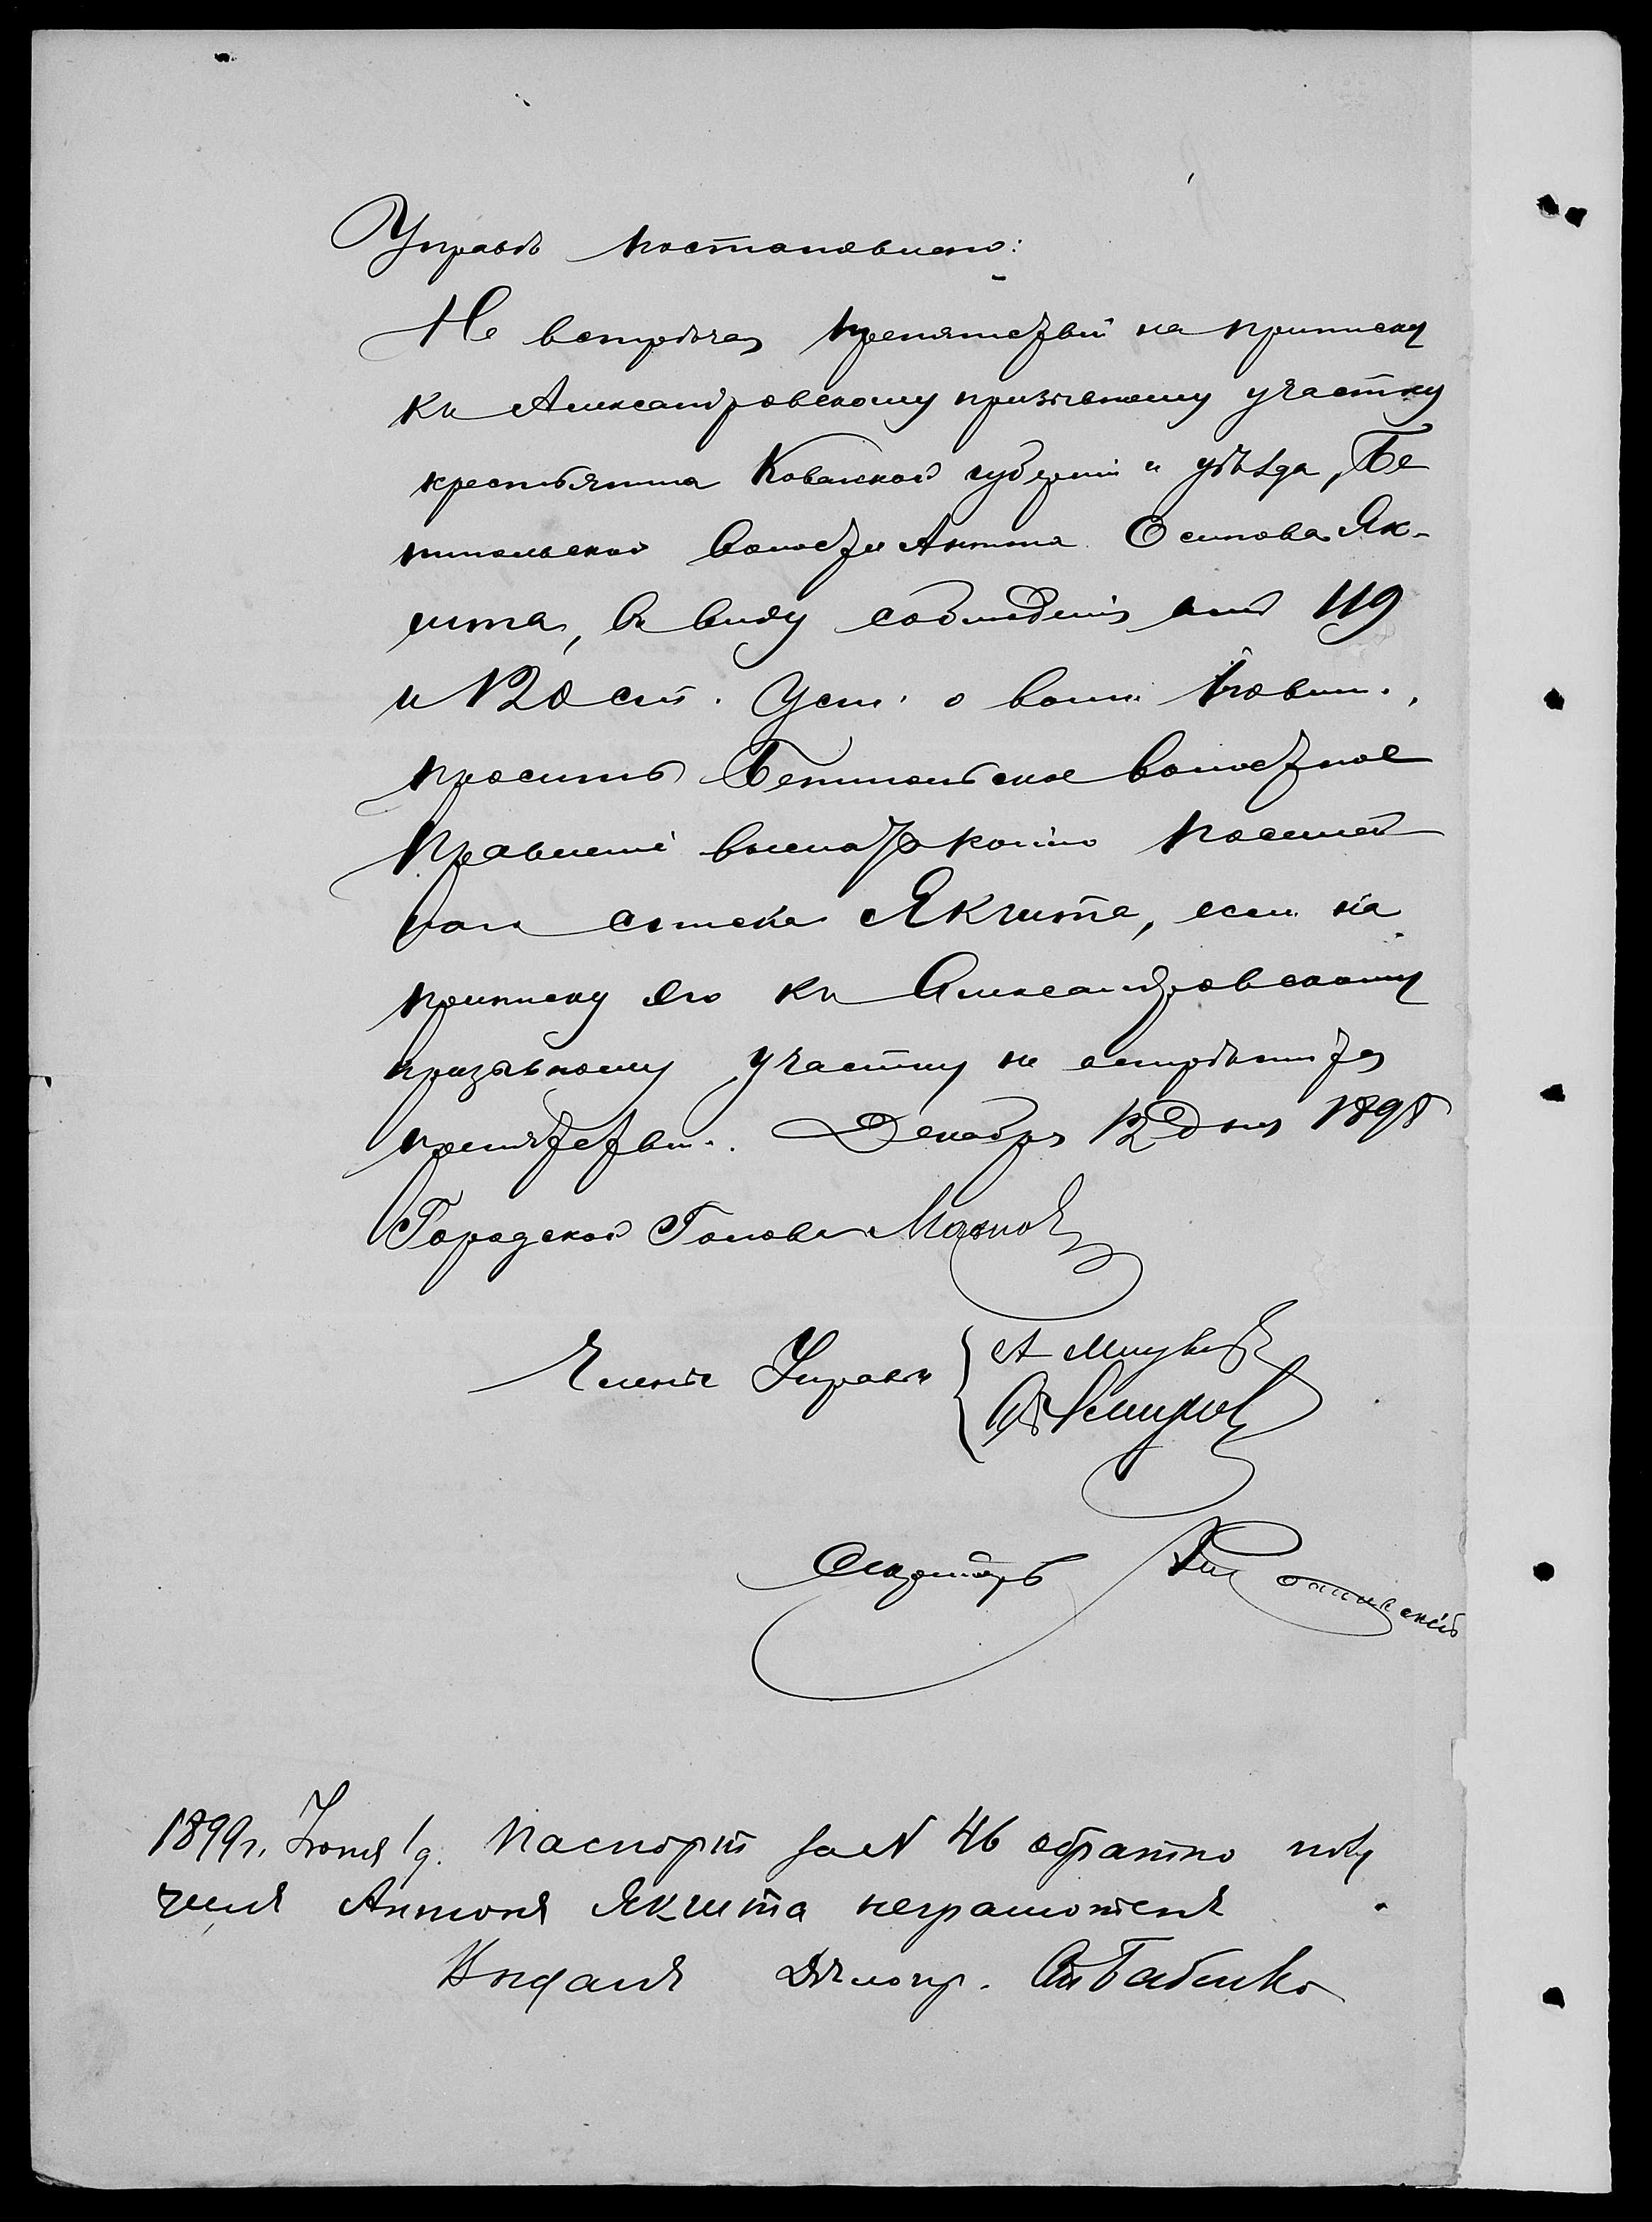 Управѣ постановлено:
Не встрѣчая препятствій на приписку
къ Александровскому призывному участку
крестьянина Ковенской губерніи и уѣзда, Бе
тигольской волости Антона Осипова Як-
щта, въ виду соблюденія имъ 119
и 120 ст. Уст. о воин. повин.,
просить Бетигольское волостное
Правленіе выслать копію посемей
наго списка Якшта, если на
приписку его къ Александровскому
призывному участку не встрѣтится
препятствій. Декабря 12 дня 1898
Городской Голова
Члены Управы
Секретарь
1899 г. Іюня 1 д. Паспортъ за № 46 обратно полу
чилъ Антонъ Якшта неграмотенъ
Выдалъ Дѣлопр. Бабенко